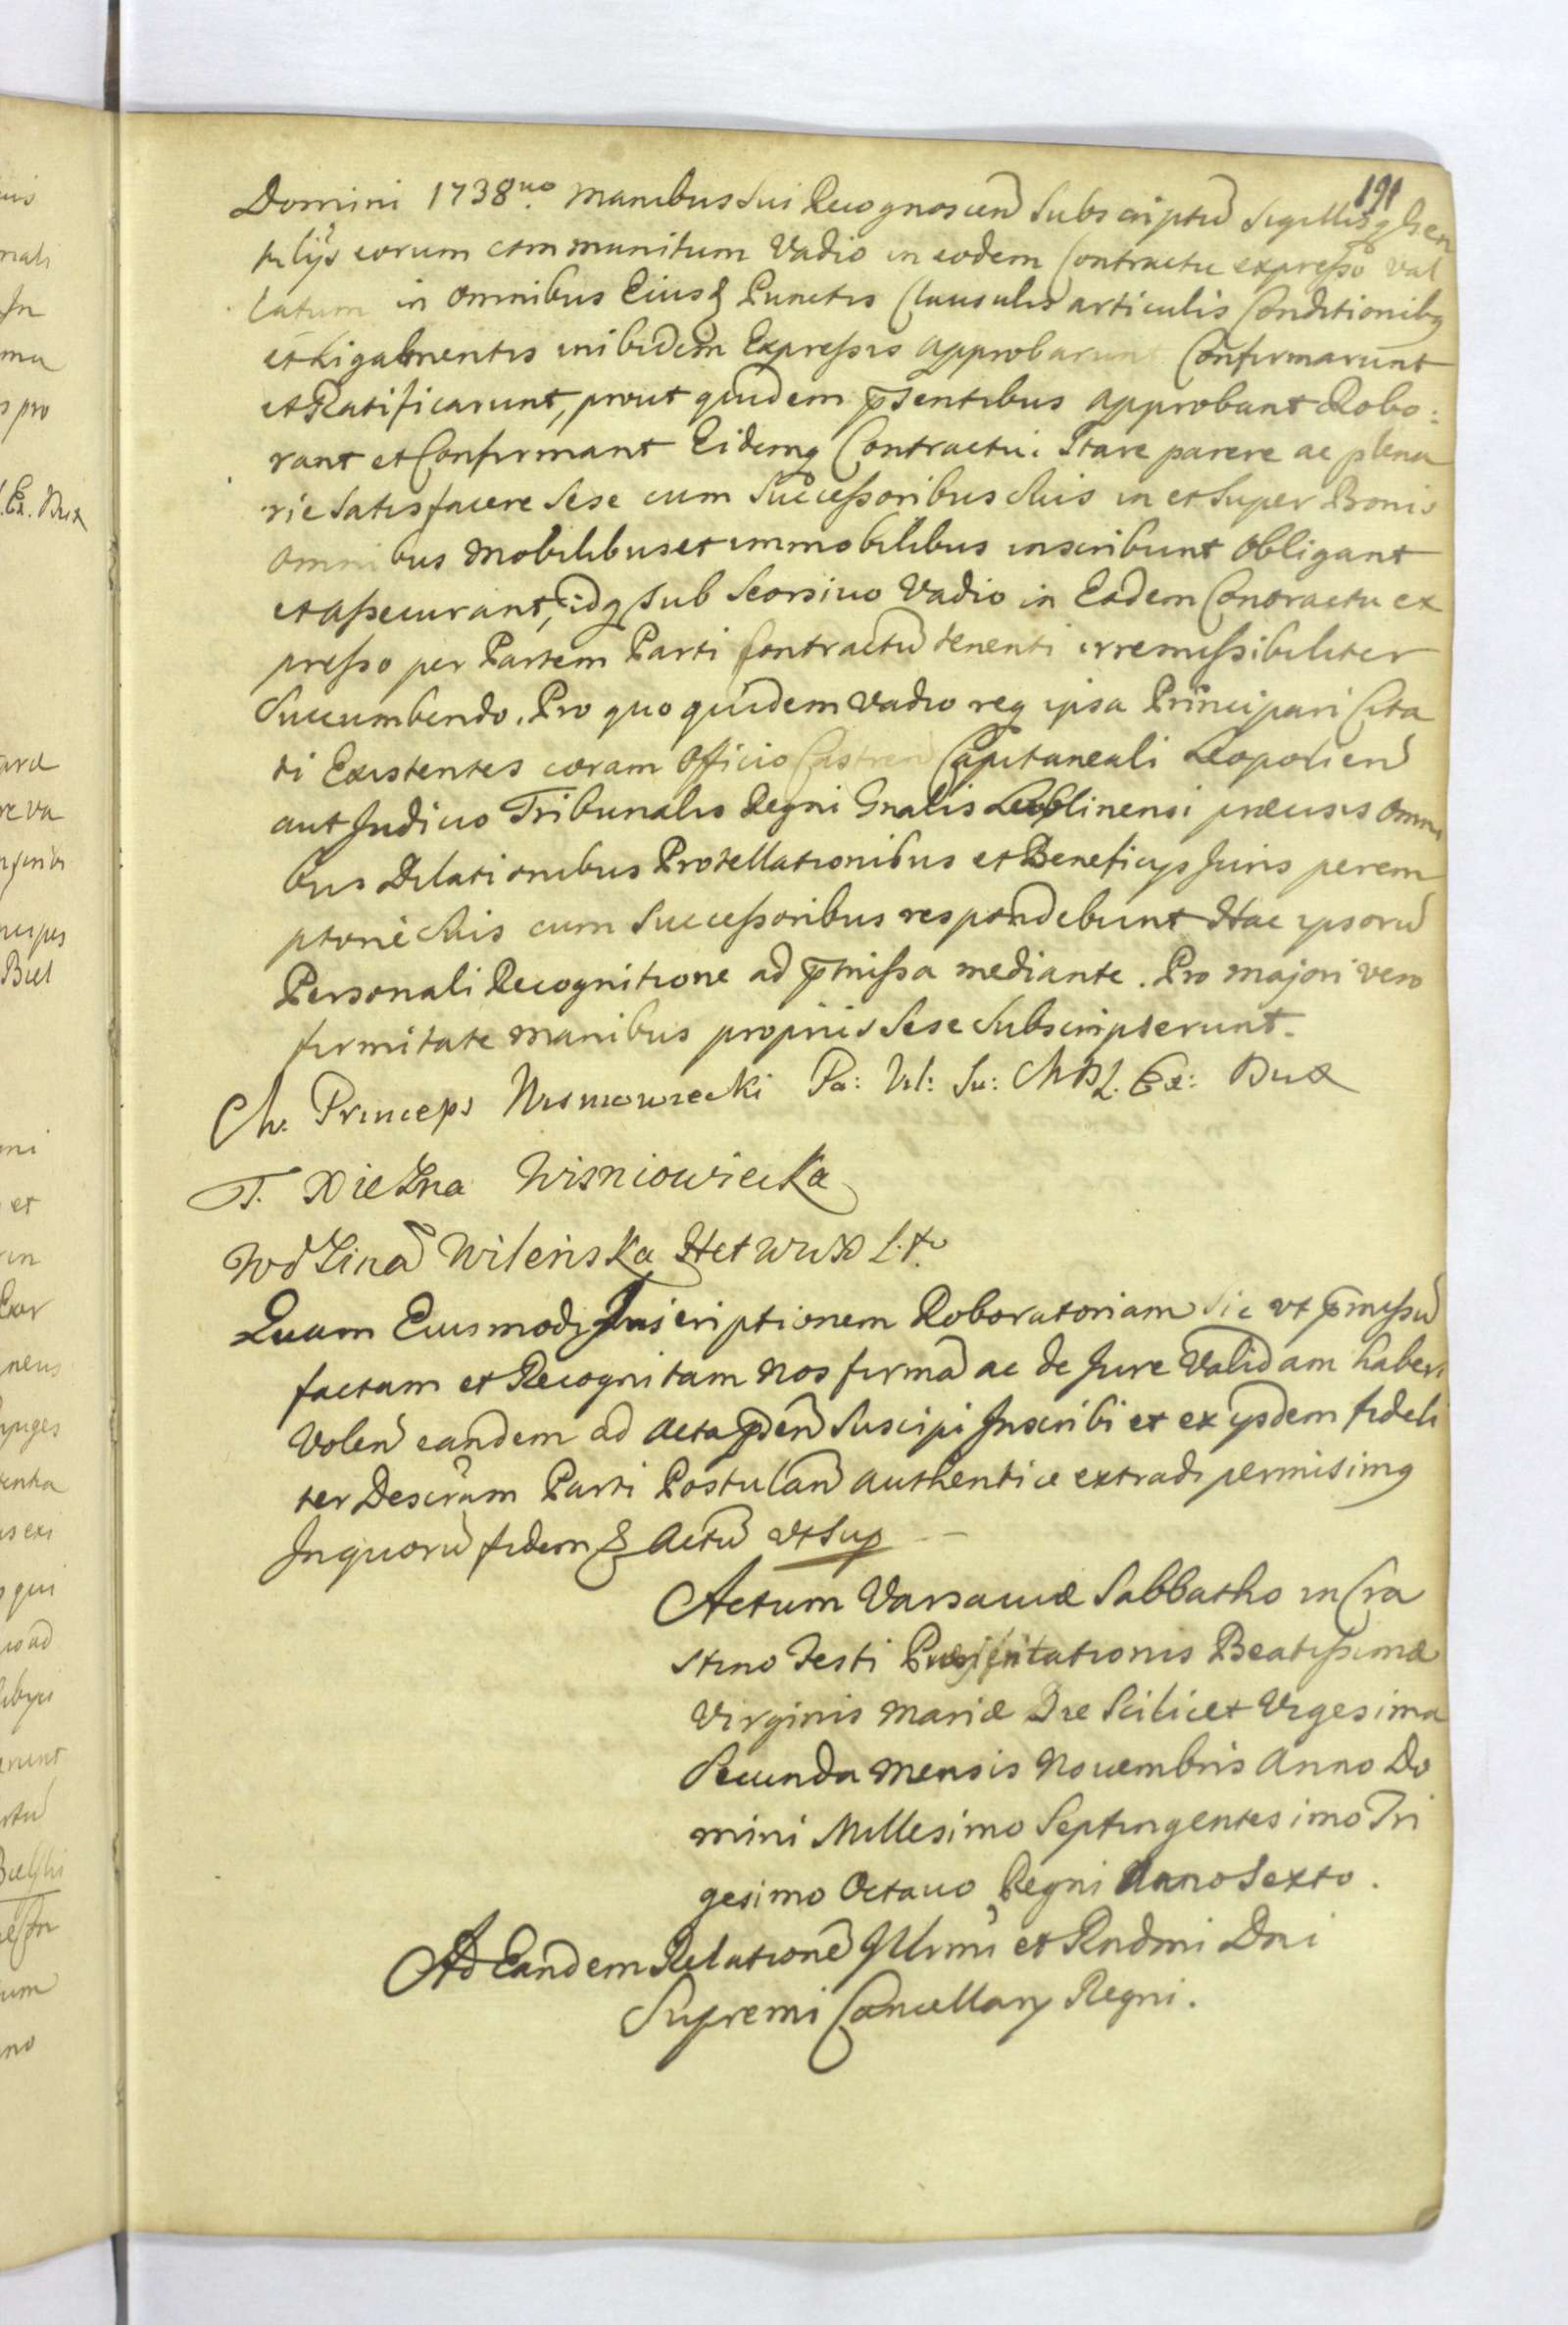 191
Domini 1738uo. Manibus Sui Recognoscen̄ Subscriptū Sigillisq Gen
tilijs eorum communitum Vadio in eodem Contractu expresso val
latum in omnibus Eiusq Punctis Clausulis articulis Conditionibq
et Ligamentis inibidem Expressis approbarunt Confirmarunt
et Ratificarunt, prout quidem p̄sentibus approbant Robo:
rant et Confirmant Eidemq Contractui Stare parere ac plena
rie Satisfacere Sese cum Successoribus Suis in et Super Bonis
omnibus Mobilibus et immobilibus inscribunt obligant
et assecurant, idq Sub Seorsivo Vadio in Eodem Contractu ex
presso per Partem Parti Contractū tenenti irremissibiliter
Succumbendo. Pro quo quidem Vadio req ipsa Principari Cita
ti Existentes coram Officio Castren̄ Capitaneali Leopolien̄
aut Judicio Tribunalis Regni Gnalis Lublinensi præcisis omni
bus Dilationibus Protellationibus et Beneficijs Juris perem
ptorie Suis cum Successoribus respondebunt Hac ipsorū
Personali Recognitione ad p̄missa mediante. Pro majori vero
firmitate manibus proprijs Sese Subscripserunt.
Ch. Princeps Wisniowiecki Pa: Vil: Su: M D L. Ex: Dux
T. XieZna Wisniowiecka
WdZina Wilenska Het W WX L. t.
Quam Eiusmodi Inscriptionem Roboratoriam Sic vt p̄missū
factam et Recognitam Nos firmā ac de Jure Validam haberi
Volen̄ eandem ad Acta p̄sen̄ Suscipi Inscribi et ex ijsdem fideli
ter Descrām Parti Postulan̄ authentice extradi permisimq
In quorū fidem & Actū vt Sup
Actum Varsaviæ Sabbatho in Cra
stino Festi Præsentationis Beatissimæ
Virginis Mariæ Die Scilicet Vigesima
Secunda Mensis Novembris Anno Do
mini Millesimo Septingentesimo Tri
gesimo Octavo Regni Anno Sexto.
Ad Eandem Relationē Illrmi et Rndmi Dni
Supremi Cancellarij Regni.